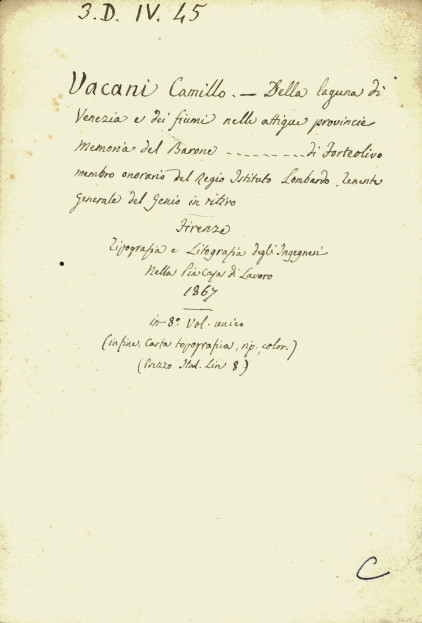 3. D. IV. 45
Vacani Camillo. — Della laguna di
Venezia e dei fiumi nelle attigue provincie
Memoria del Barone --------- di Forteolivo
membro onorario del Regio Istituto Lombardo, Tenente
generale del Genio in ritiro
Firenze
Tipografia e Litografia degli Ingegneri
Nella Pia Casa di Lavoro
1867
in-8° Vol. unico
(in fine, Carta topografica, rip., color.)
(Prezzo Ital. Lire 8)
C